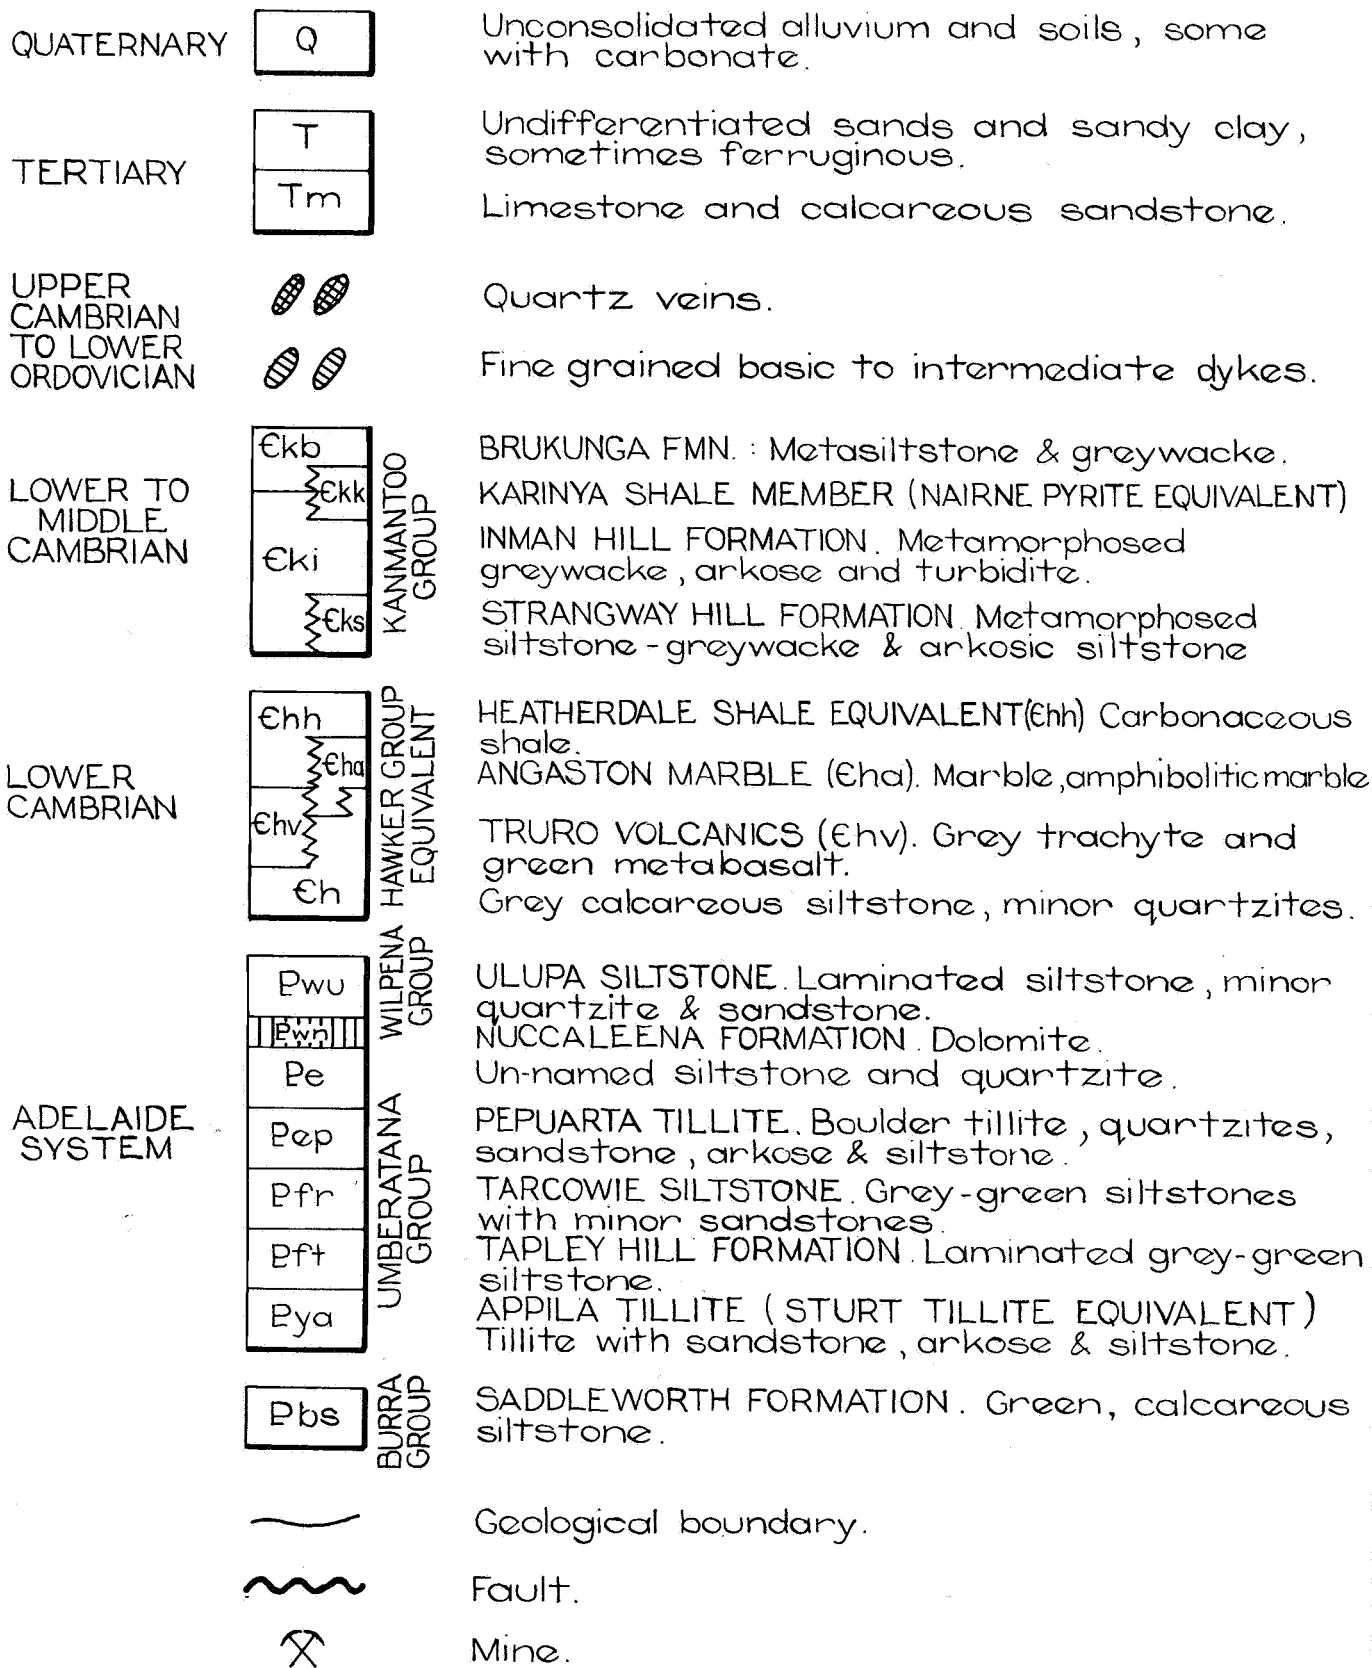 QUATERNARY
Q
Unconsolidated alluvium and soils, some
with carbonate.
TERTIARY
T
Undifferentiated sands and sandy clay,
sometimes ferruginous.
Tm
Limestone and calcareous sandstone.
UPPER
CAMBRIAN
TO LOWER
ORDOVICIAN
Quartz veins.
Fine grained basic to intermediate dykes.
LOWER TO
MIDDLE
CAMBRIAN
KANMANTOO
GROUP
Єkb
BRUKUNGA FMN. : Metasiltstone & greywacke.
Єkk
KARINYA SHALE MEMBER (NAIRNE PYRITE EQUIVALENT)
Єki
INMAN HILL FORMATION. Metamorphosed
greywacke, arkose and turbidite.
Єks
STRANGWAY HILL FORMATION. Metamorphosed
siltstone-greywacke & arkosic siltstone
LOWER
CAMBRIAN
HAWKER GROUP
EQUIVALENT
Єhh
HEATHERDALE SHALE EQUIVALENT(Єhh) Carbonaceous
shale.
Єha
ANGASTON MARBLE (Єha). Marble, amphibolitic marble
Єhv
TRURO VOLCANICS (Єhv). Grey trachyte and
green metabasalt.
Єh
Grey calcareous siltstone, minor quartzites.
ADELAIDE
SYSTEM
WILPENA
GROUP
Pwu
ULUPA SILTSTONE. Laminated siltstone, minor
quartzite & sandstone.
Pwn
NUCCALEENA FORMATION. Dolomite.
UMBERATANA
GROUP
Pe
Un-named siltstone and quartzite.
Pep
PEPUARTA TILLITE. Boulder tillite, quartzites,
sandstone, arkose & siltstone.
Pfr
TARCOWIE SILTSTONE. Grey-green siltstones
with minor sandstones.
Pft
TAPLEY HILL FORMATION. Laminated grey-green
siltstone.
Pya
APPILA TILLITE (STURT TILLITE EQUIVALENT)
Tillite with sandstone, arkose & siltstone.
BURRA
GROUP
Pbs
SADDLEWORTH FORMATION. Green, calcareous
siltstone.
Geological boundary.
Fault.
Mine.